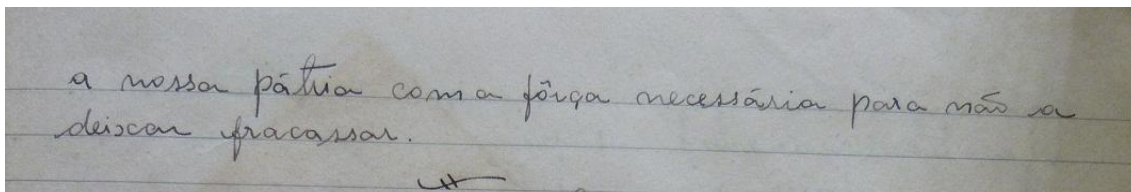 a nossa pátria com a fôrça necessária para não a
deixar fracassar.